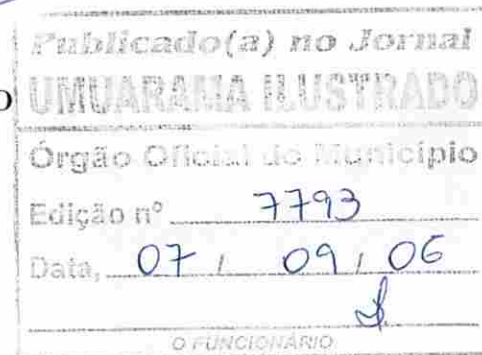 Publicado(a) no Jornal
O UMUARAMA ILUSTRADO
Órgão Oficial do Município
Edição nº 7793
Data, 07 / 09 / 06
O FUNCIONÁRIO